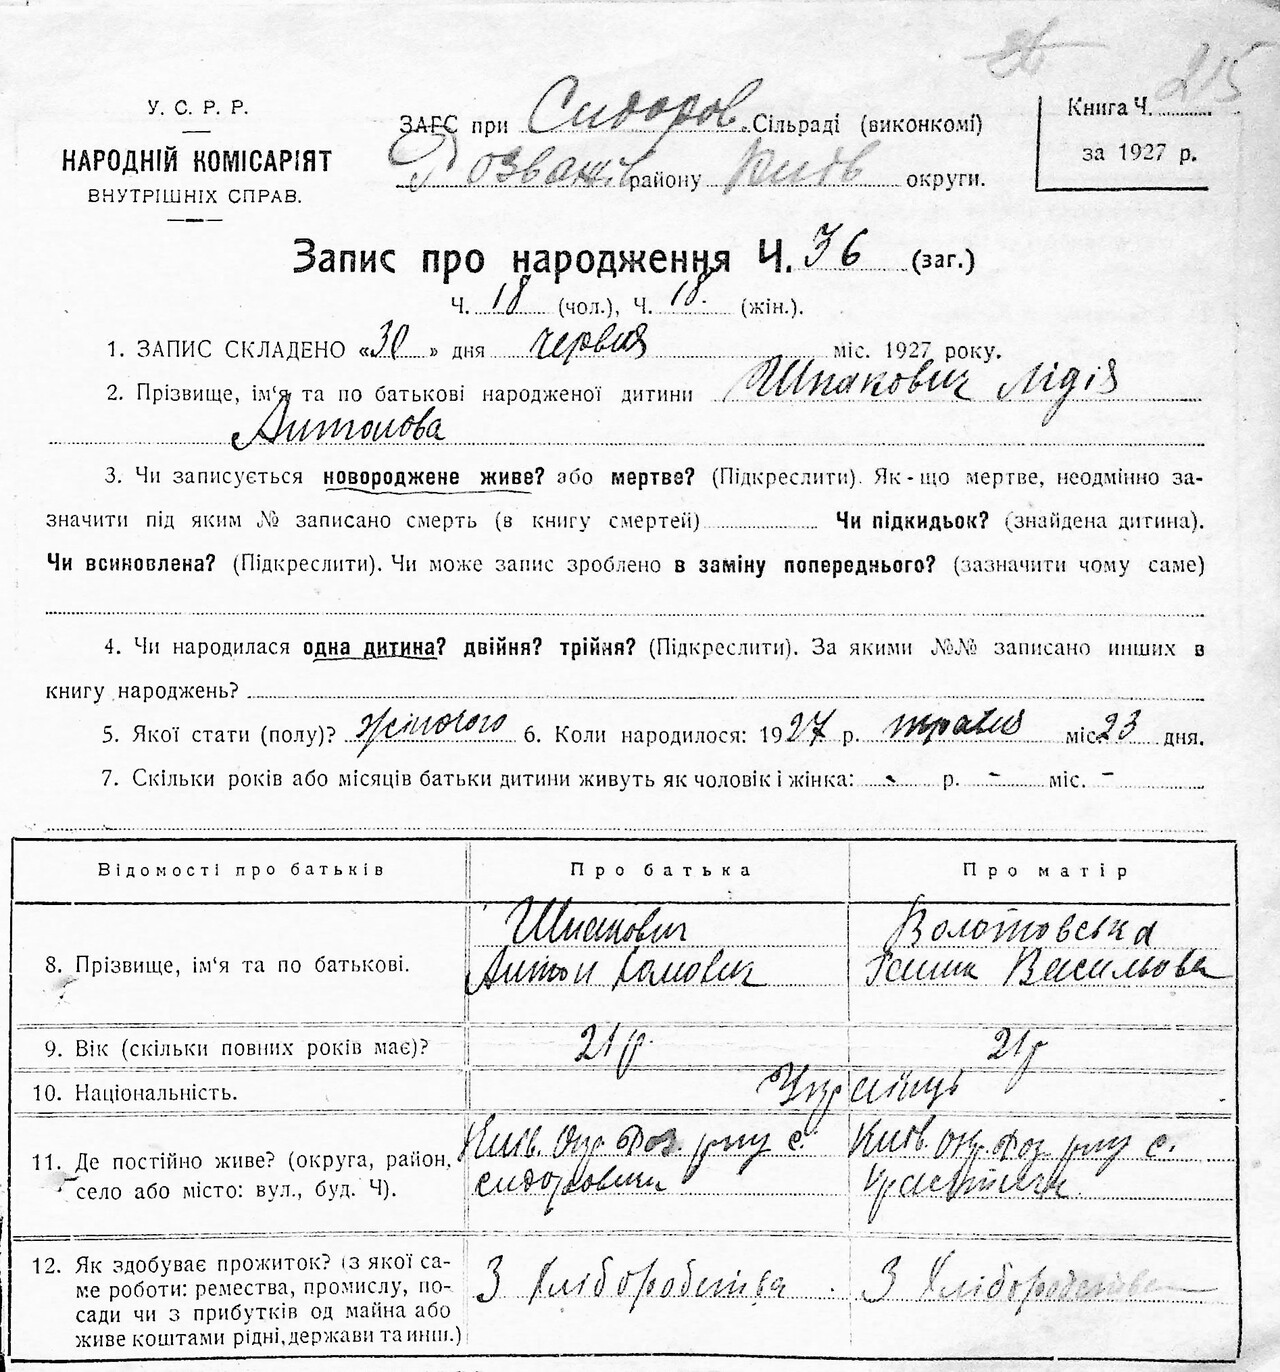 215
У. С. Р. Р.
НАРОДНІЙ КОМІСАРІЯТ
ВНУТРІШНІХ СПРАВ.
ЗАГС при Сидоров. Сільраді (виконкомі)
Розважів району Київ округи.
Книга Ч.
за 1927 р.
Запис про народження Ч. 36 (заг.)
Ч. 18 (чол.), Ч. 18. (жін.).
1. ЗАПИС СКЛАДЕНО «30» дня червня міс. 1927 року.
2. Прізвище, ім'я та по батькові народженої дитини Шпакович Лідія
Антонова
3. Чи записується новороджене живе? або мертве? (Підкреслити). Як-що мертве, неодмінно за-
значити під яким № записано смерть (в книгу смертей) Чи підкидьок? (знайдена дитина).
Чи всиновлена? (Підкреслити). Чи може запис зроблено в заміну попереднього? (зазначити чому саме)
4. Чи народилася одна дитина? двійня? трійня? (Підкреслити). За якими №№ записано инших в
книгу народжень?
5. Якої стати (полу)? жіночого 6. Коли народилося: 1927 р. травня міс. 23 дня.
7. Скільки років або місяців батьки дитини живуть як чоловік і жінка: - р. - міс. -
Відомості про батьків Про батька Про матір
8. Прізвище, ім'я та по батькові.
Шпакович
Антон
Волотовська
Ганна Васильова
9. Вік (скільки повних років має)? 21 р. 21 р
10. Національність. Українці
11. Де постійно живе? (округа, район,
село або місто: вул., буд. Ч).
Київ. окр. Роз. рну с.
Сидоровичі
Київ. окр. Роз. рну с.
12. Як здобуває прожиток? (з якої са-
ме роботи: ремества, промислу, по-
сади чи з прибутків од майна або
живе коштами рідні, держави та инш.)
З хліборобства
З хліборобства